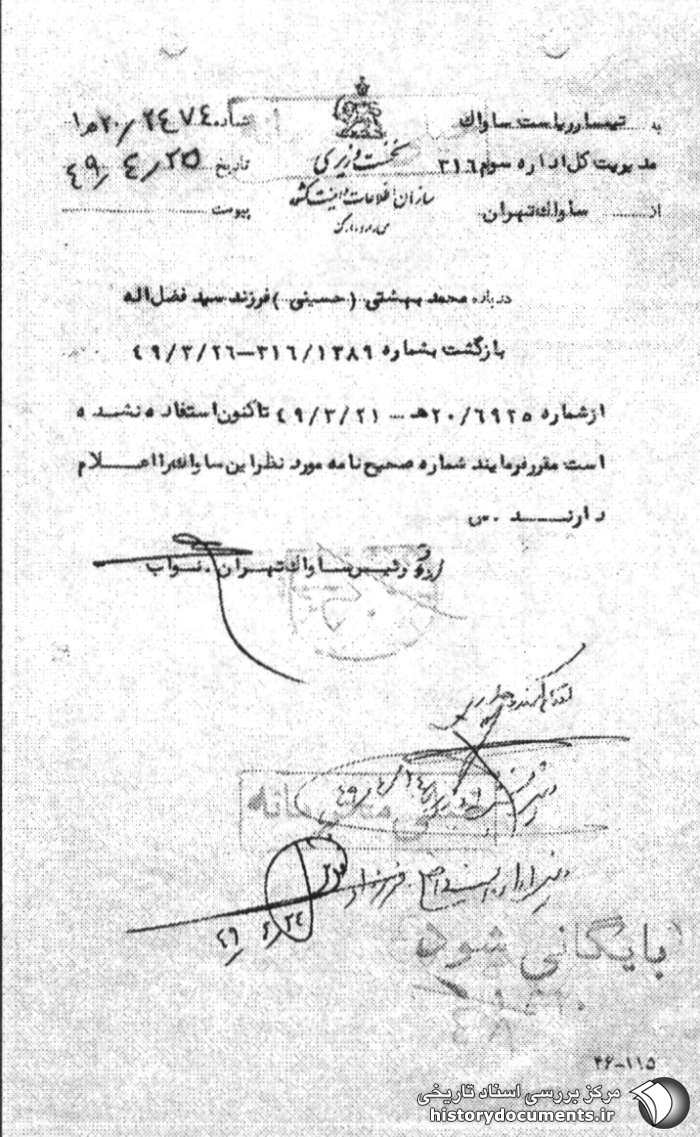 به تیمسار ریاست ساواك
مدیریت کل اداره سوم ۳۱٦
از ساواك تهران
نخست وزیری
سازمان اطلاعات و امنیت کشور
شماره ۲٤۷٤/ ۲۰ه‍ ۱
تاریخ ۲۵/ ٤/ ٤۹
پیوست
درباره محمد بهشتی (حسینی) فرزند سید فضل اله
بازگشت بشماره ۳۱٦/۱۳۸۹—٤۹/۳/۲٦
از شماره ۲۰/٦۹۲۵ه‍ — ٤۹/۳/۲۱ تاکنون استفاده نشده
است مقرر فرمایند شماره صحیح نامه مورد نظر این ساواك را اعلام
دارند .س
رئیس ساواك تهران . نواب
خیلی محرمانه
۲٤/ ٤/ ٤۹
بایگانی شود
۴۶-۱۱۵
مرکز بررسی اسناد تاریخی
historydocuments.ir